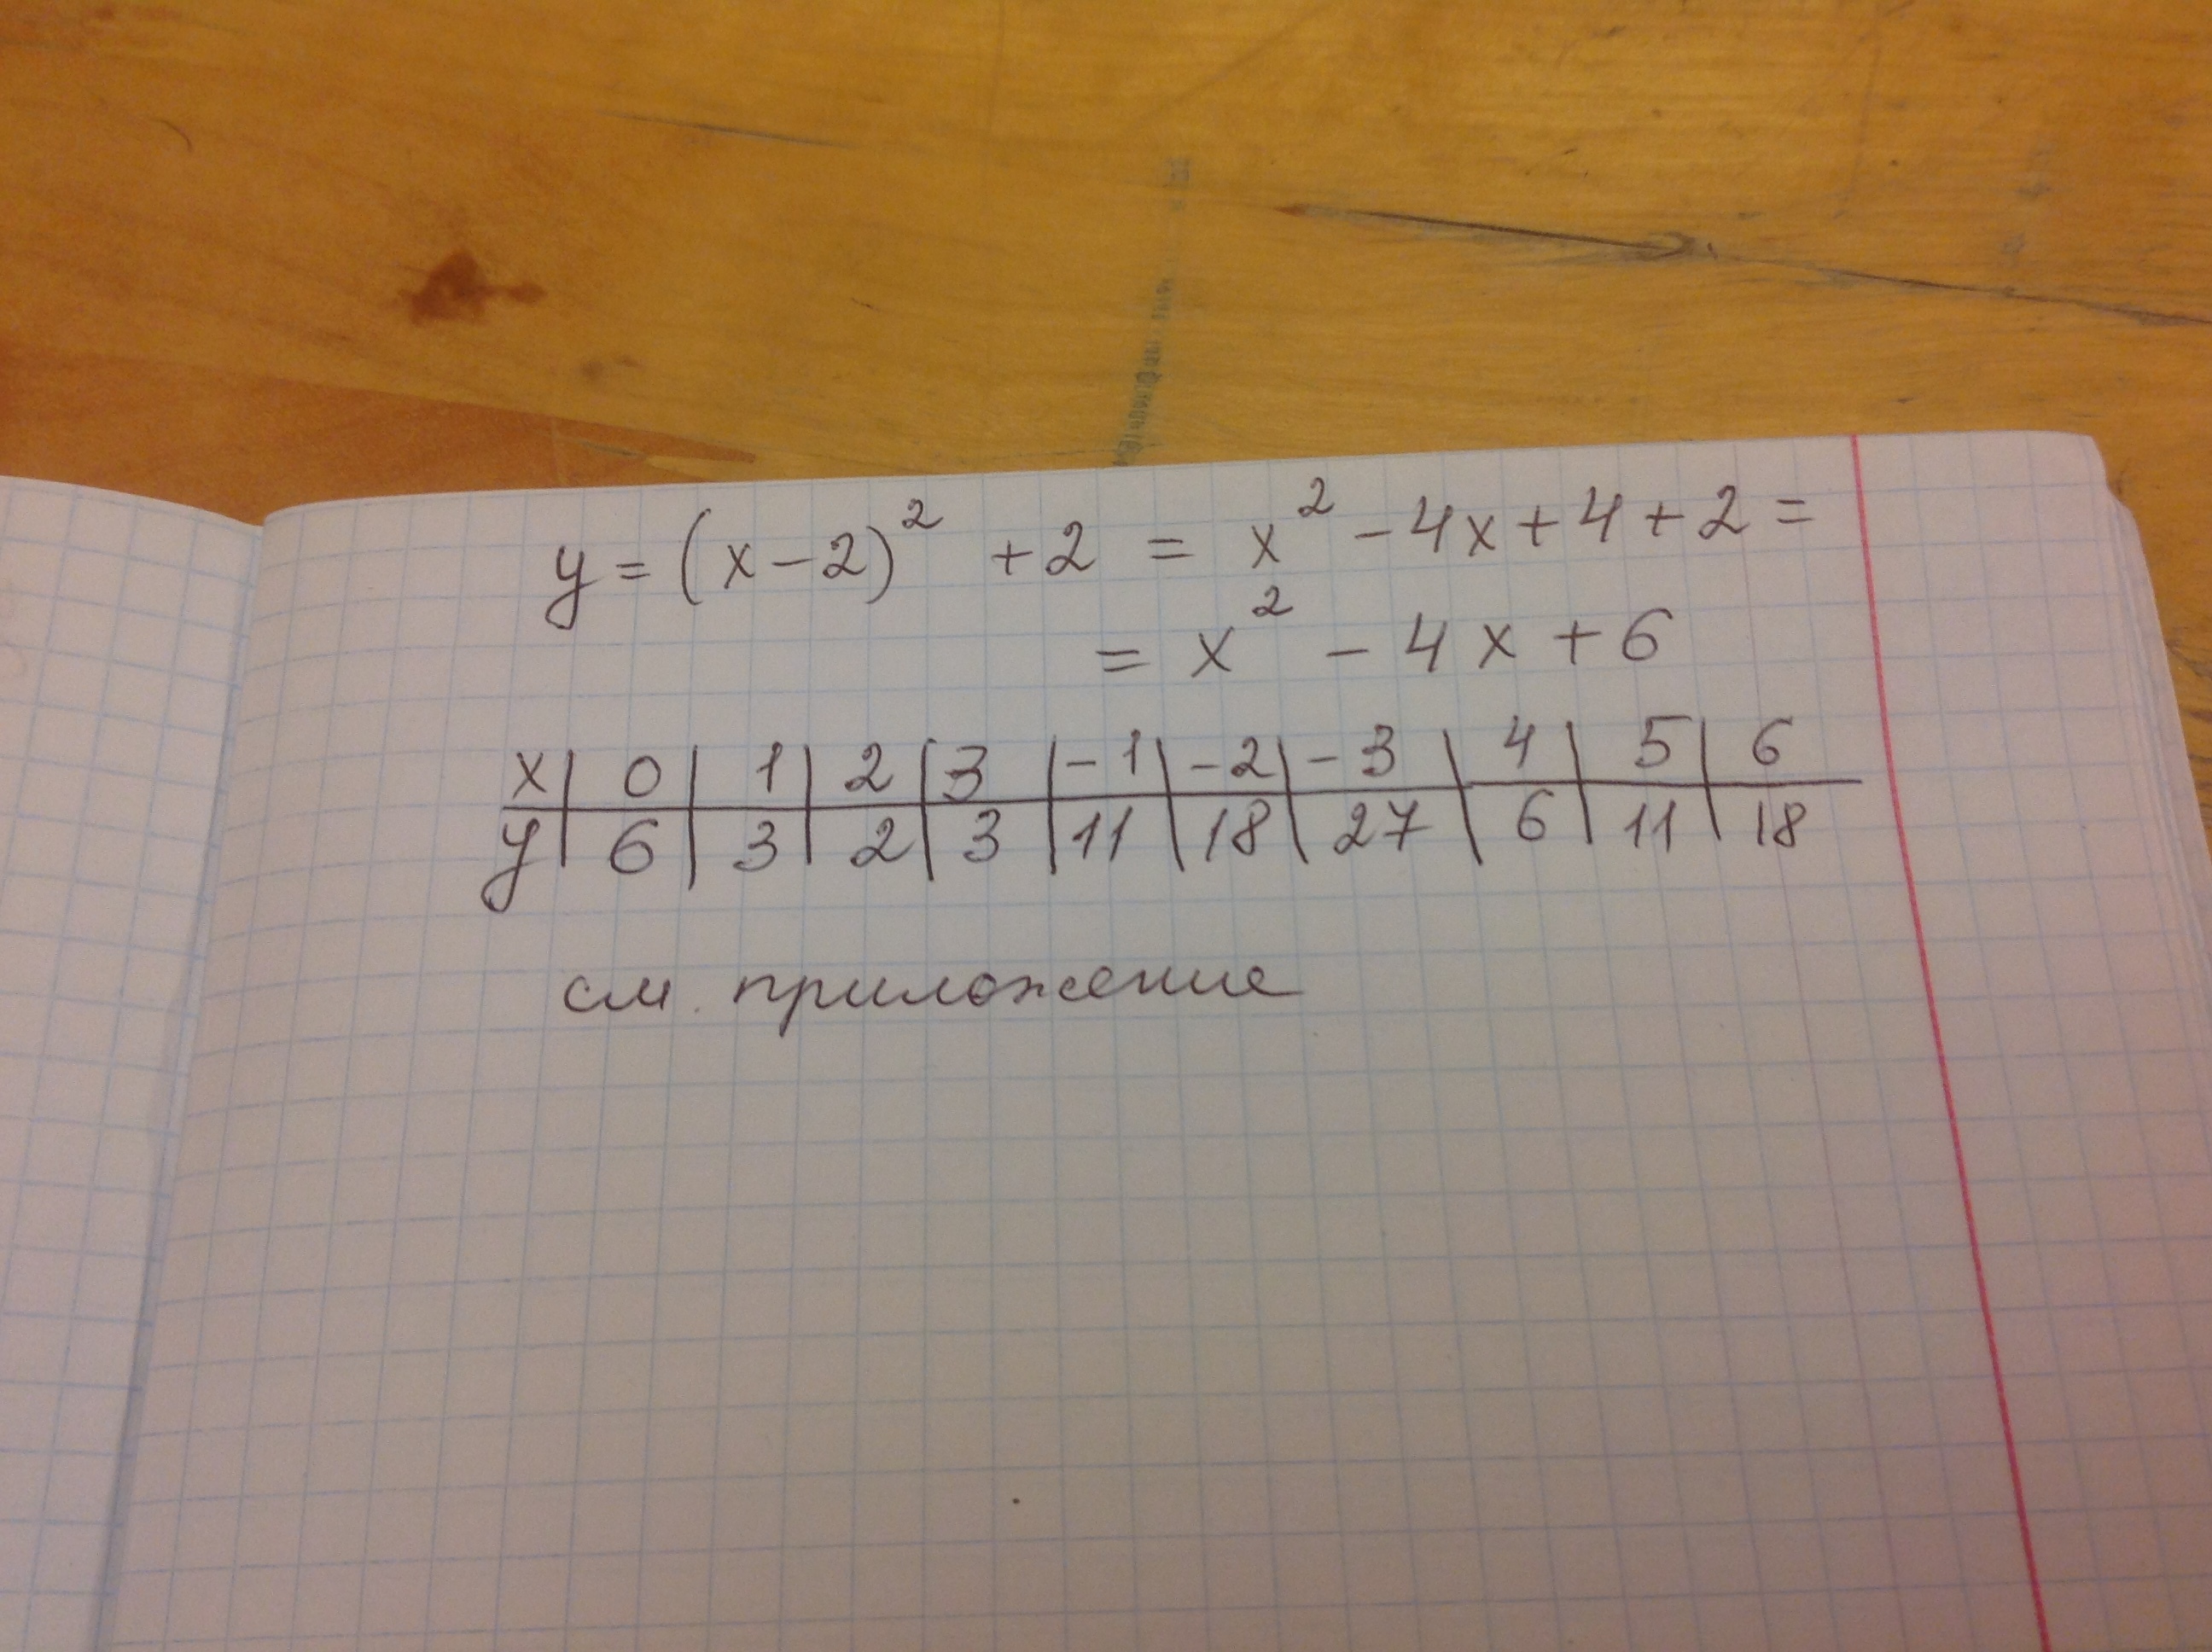 y = (x-2)² + 2 = x² - 4x + 4 + 2 =
= x² - 4x + 6
x | 0 | 1 | 2 | 3 | -1 | -2 | -3 | 4 | 5 | 6
y | 6 | 3 | 2 | 3 | 11 | 18 | 27 | 6 | 11 | 18
см. приложение